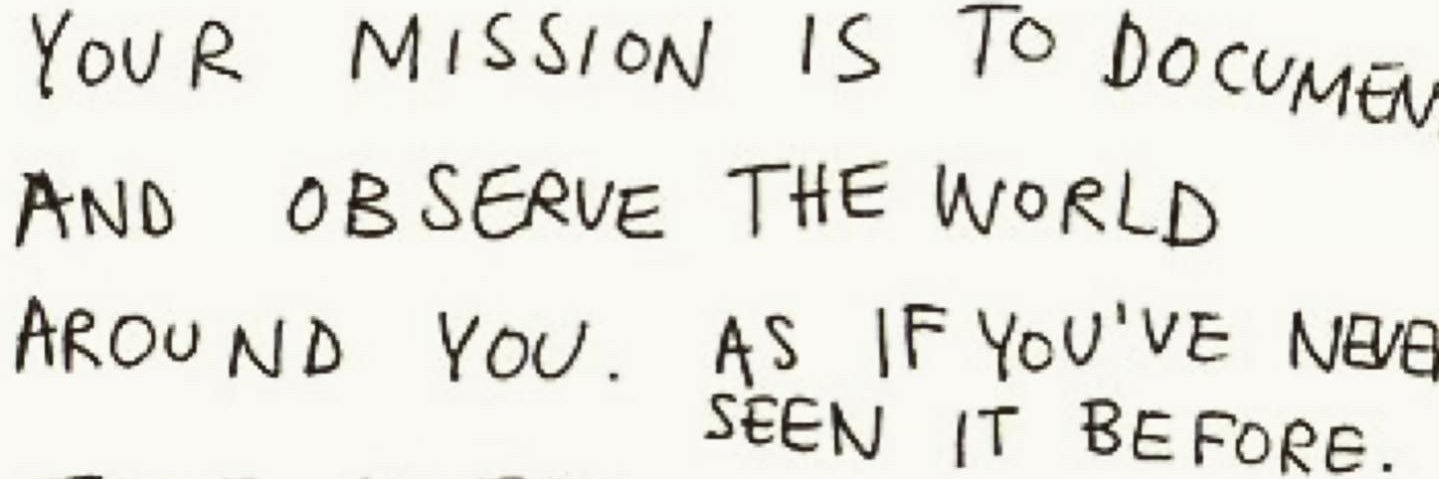 YOUR MISSION IS TO DOCUMEN
AND OBSERVE THE WORLD
AROUND YOU. AS IF YOU'VE NEVE
SEEN IT BEFORE.